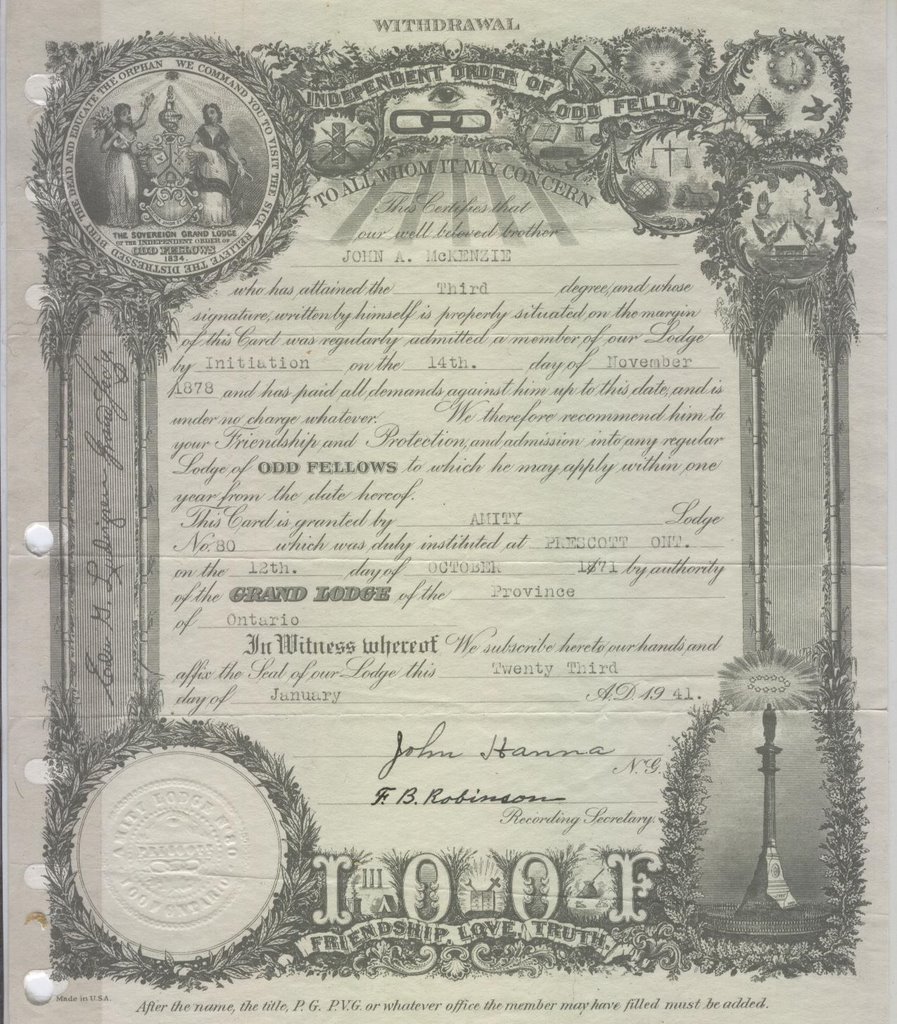 WITHDRAWAL
INDEPENDENT ORDER OF ODD FELLOWS
WE COMMAND YOU TO VISIT THE SICK RELIEVE THE DISTRESSED BURY THE DEAD AND EDUCATE THE ORPHAN
THE SOVEREIGN GRAND LODGE
OF THE INDEPENDENT ORDER OF
ODD FELLOWS
1834.
TO ALL WHOM IT MAY CONCERN
This Certifies that
our well beloved brother
JOHN A. McKENZIE
who has attained the Third degree, and whose
signature, written by himself is properly situated on the margin
of this Card was regularly admitted a member of our Lodge
by Initiation on the 14th. day of November
1878 and has paid all demands against him up to this date, and is
under no charge whatever. We therefore recommend him to
your Friendship and Protection, and admission into any regular
Lodge of ODD FELLOWS to which he may apply within one
year from the date hereof.
This Card is granted by AMITY Lodge
No. 80 which was duly instituted at PRESCOTT ONT.
on the 12th. day of OCTOBER 1871 by authority
of the GRAND LODGE of the Province
of Ontario
In Witness whereof We subscribe hereto our hands, and
affix the Seal of our Lodge this Twenty Third
day of January A.D. 19 41.
John Hanna
N.G.
F. B. Robinson
Recording Secretary.
AMITY LODGE No 80
PRESCOTT
I.O.O.F. ONTARIO
I O O F
FRIENDSHIP, LOVE, TRUTH.
Made in U.S.A.
After the name, the title, P. G. P.V.G. or whatever office the member may have filled must be added.